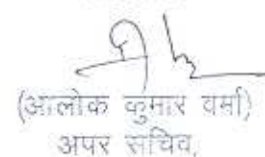 (आलोक कुमार वर्मा)
अपर सचिव,